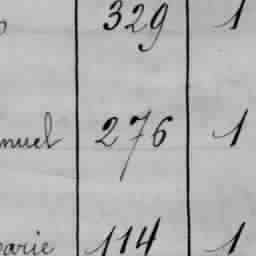 329 1
nuel 276 1
arie 114 1